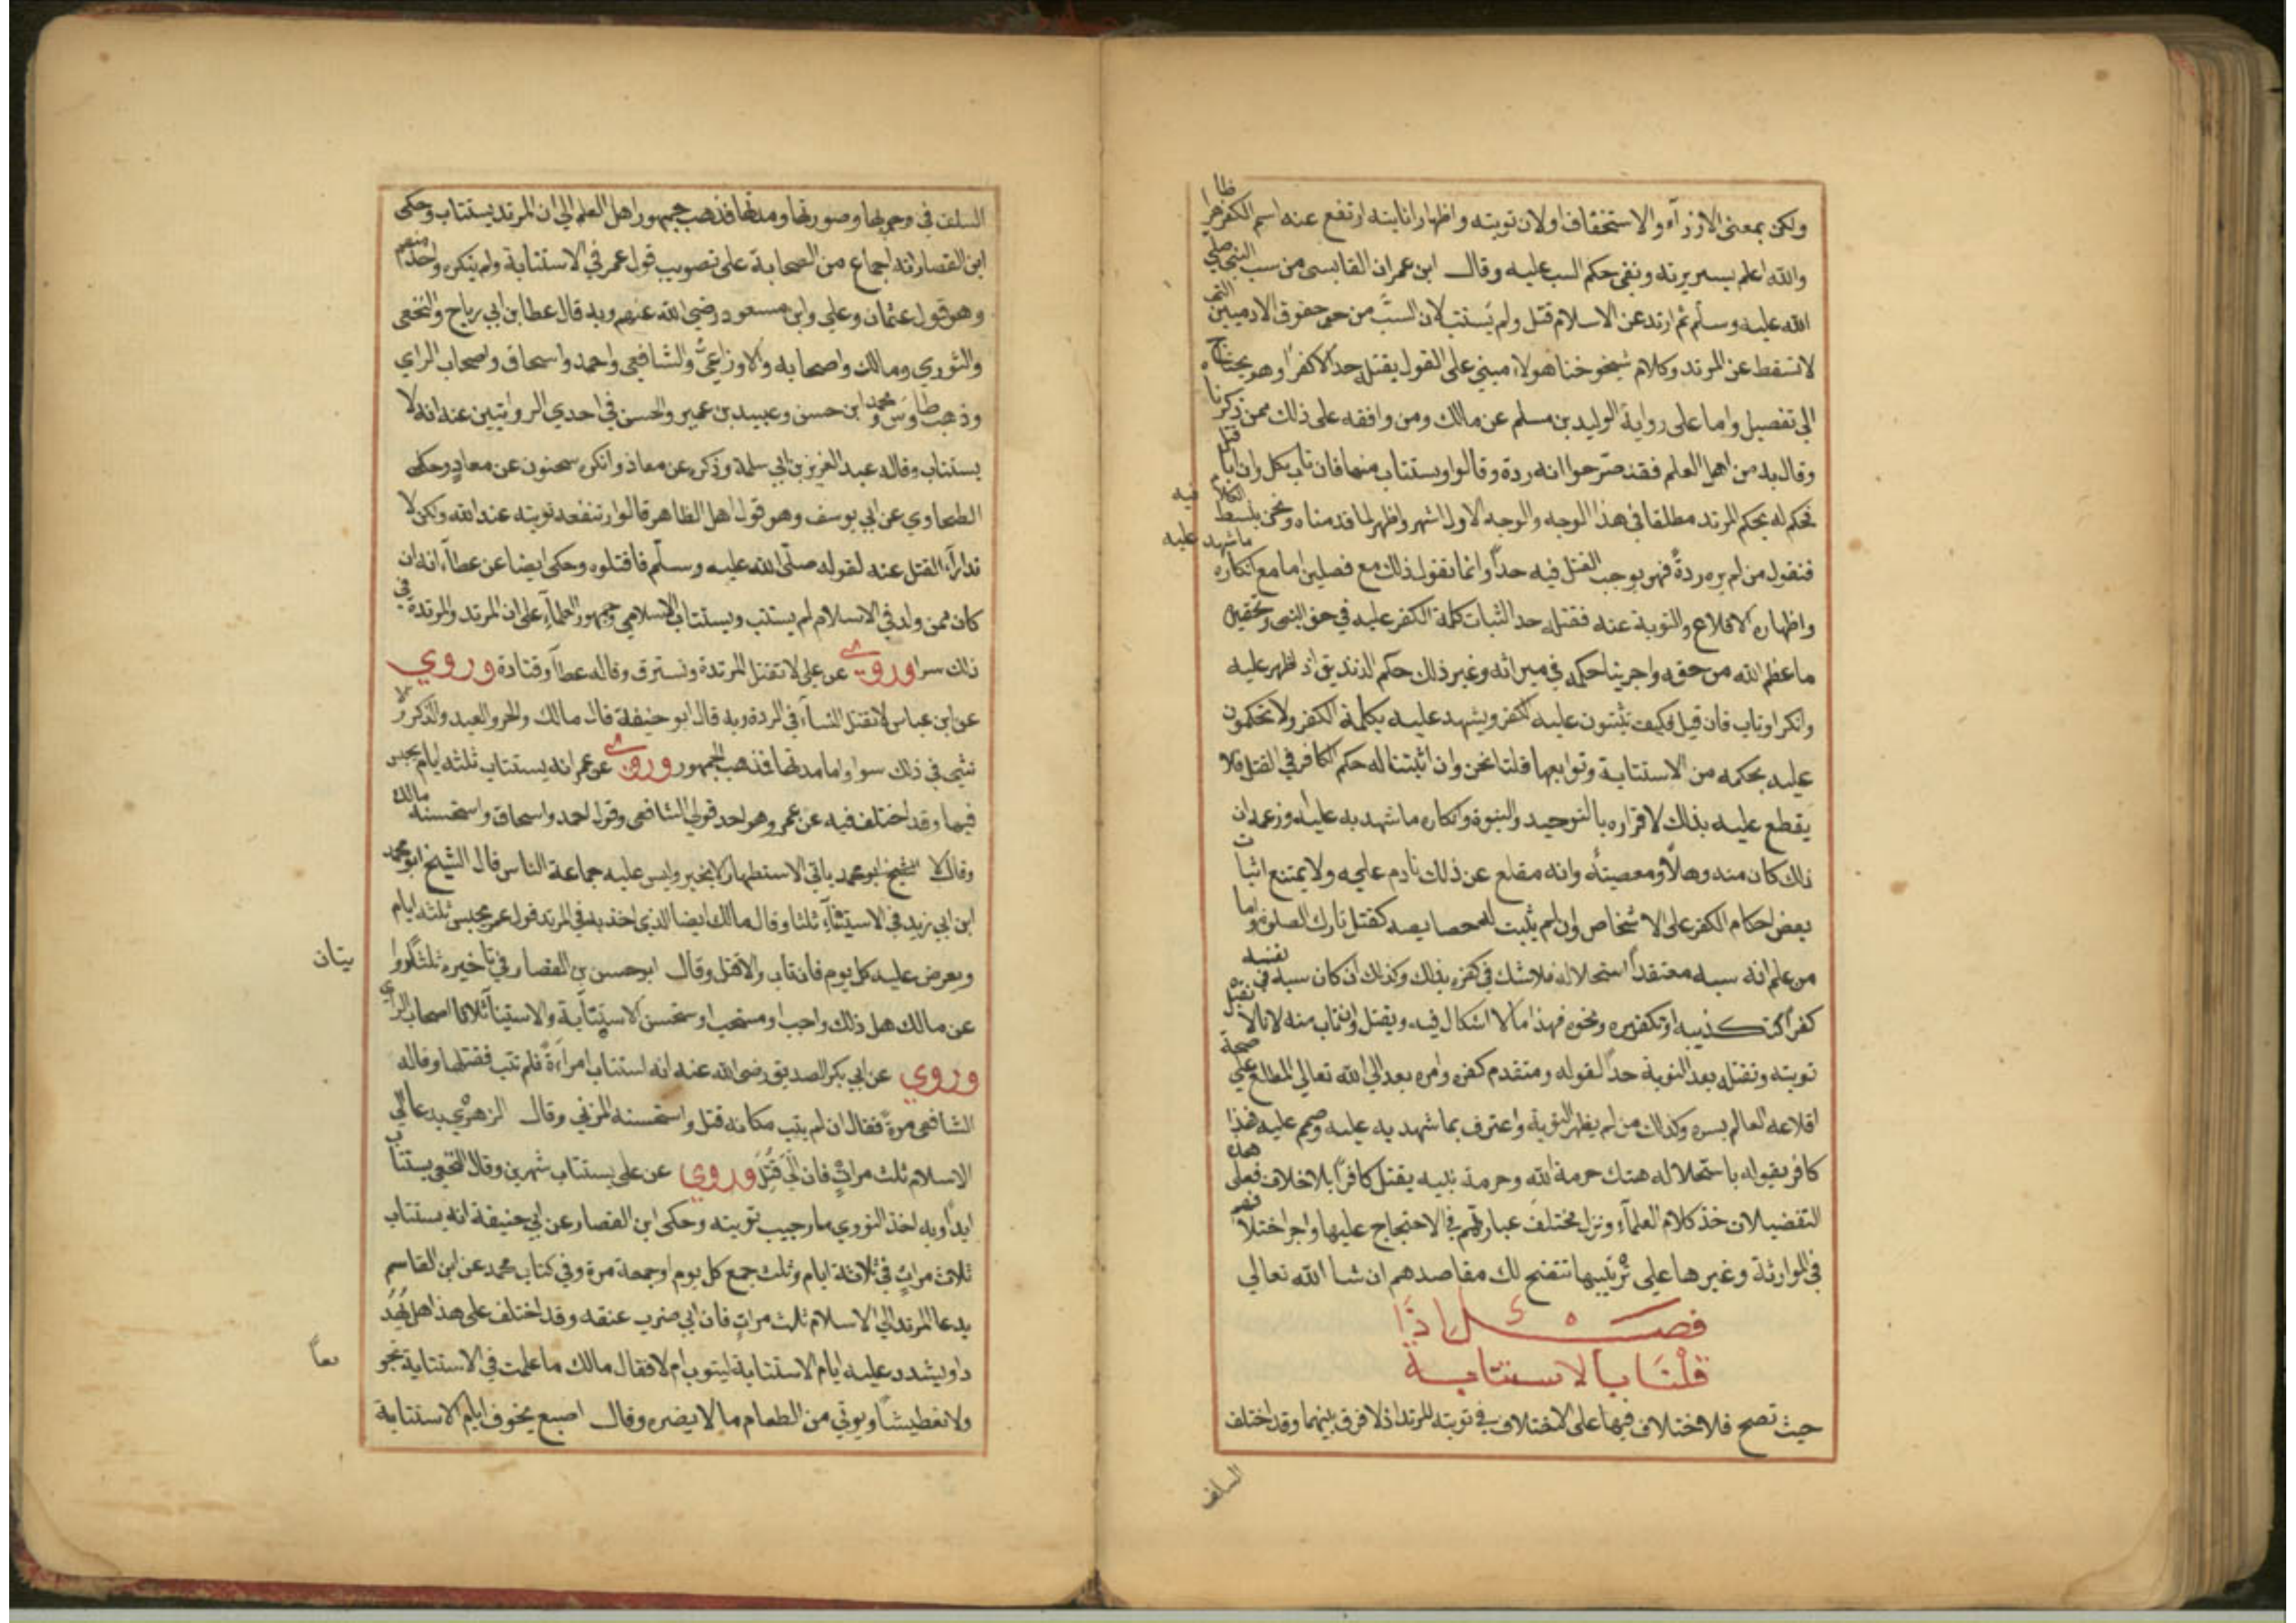 ولكن بمعنى الازرآء والاستخفاف او لان توبته واظهار انابته ارتفع عنه اسم الكفر ظاهرا
والله اعلم بسريرته ونفى حكم السب عليه وقال ابن عمران القابسى من سب النبي صلى
الله عليه وسلم ثم ارتد عن الاسلام قتل ولم يستتب لان السب من حق حقوق الادميين التى
لا تسقط عن المرتد وكلام شيوخنا هولاء مبني على القول بقتله حدا لا كفرا وهو يحتاج
الى تفصيل واما على رواية الوليد بن مسلم عن مالك ومن وافقه على ذلك ممن ذكرناه
وقال به من اهل العلم فقد صرحوا انه ردة وقالوا ويستتاب منها فان تاب نكل وان ابا قتل
فحكم له بحكم المرتد مطلقا في هذا الوجه والوجه الاول اشهر واظهر لما قدمناه ونحن نبسط الكلام فيه
فنقول من لم يره ردة فهو يوجب القتل فيه حدا وانما نقول ذلك مع فصلين اما مع انكاره ما شهد عليه
واظهاره الاقلاع والتوبة عنه فقتله حدا لثبات كلمة الكفر عليه في حق النبي وتحقيره
ما عظم الله من حقه واجرينا حكمه في ميراثه وغير ذلك حكم الزنديق اذ اظهر عليه
وانكر او تاب فان قيل فكيف تثبتون عليه الكفر ويشهد عليه بكلمة الكفر ولا تحكمون
عليه بحكمه من الاستتابة وتوابعها قلنا نحن وان اثبتنا له حكم الكافر في القتل فلا
يقطع عليه بذلك لاقراره بالتوحيد والنبوة وانكاره ما شهد به عليه وزعمه ان
ذلك كان منه وهلا ومعصية وانه مقلع عن ذلك نادم عليه ولا يمتنع اثبات
بعض احكام الكفر على الاشخاص وان لم يثبت له خصايصه كقتل تارك الصلوة واما
من علم انه سبه معتقدا استحلاله فلا شك في كفره بذلك وكذلك ان كان سبه في نفسه
كفرا كتكذيبه او تكفيره ونحوه فهذا ما لا اشكال فيه ويقتل وان تاب منه لانا لا نقبل
توبته ونقتله بعد التوبة حدا لقوله ومتقدم كفره وامره بعد الى الله تعالى المطلع على صحة
اقلاعه العالم بسره وكذلك من لم يظهر التوبة واعترف بما شهد به عليه وصمم عليه فهذا
كافر بقوله باستحلاله هتك حرمة الله وحرمة نبيه يقتل كافرا بلا خلاف فعلى هذه
التفضيلات خذ كلام العلمآء ونزل مختلف عباراتهم في الاحتجاج عليها واجر اختلافهم
في الموارثة وغيرها على ترتيبها تتضح لك مقاصدهم ان شا الله تعالى
فصــــل اذا
قلنا بالاستتابة
حيث تصح فلا ختلاف فيها على الاختلاف في توبته المرتد اذ لا فرق بينهما وقد اختلف
السلف
السلف في وجوبها وصورتها ومدتها فذهب جمهور اهل العلم الى ان المرتد يستتاب وحكى
ابن القصار انه اجماع من الصحابة على تصويب قول عمر في الاستتابة ولم ينكره واحد منهم
وهو قول عثمان وعلي وابن مسعود رضي الله عنهم وبه قال عطا بن ابي رباح والنخعي
والثوري ومالك واصحابه والاوزاعي والشافعي واحمد واسحاق واصحاب الراي
وذهب طاوس ومحمد ابن حسن وعبيد بن عمير والحسن في احدي الروايتين عنه انه لا
يستتاب وقاله عبد العزيز بن ابي سلمة وذكره عن معاذ وانكره سحنون عن معاذ وحكى
الطحاوي عن ابي يوسف وهو قول اهل الظاهر قالوا وتنفعه توبته عند الله ولكن لا
تدارآء القتل عنه لقوله صلى الله عليه وسلم فاقتلوه وحكى ايضا عن عطآء انه ان
كان ممن ولد في الاسلام لم يستتب ويستتاب الاسلامي وجمهور العلمآء على ان المرتد والمرتدة في
ذلك سوا وروي عن علي لا تقتل المرتدة وتسترق وقاله عطآ وقتادة وروي
عن ابن عباس لا تقتل النسآء في الردة وبه قال ابو حنيفة قال مالك والحر والعبد والذكر والا
نثى في ذلك سوا واما مدتها فذهب الجمهور وروي عن عمر انه يستتاب ثلثه ايام يحبس
فيها وقد اختلف فيه عن عمر وهو احد قولي الشافعي وقول احمد واسحاق واستحسنه مالك
وقال لا ياتي الاستظهار الا بخير وليس عليه جماعة الناس قال الشيخ ابو محمد
ابن ابي زيد في الاستيتآء ثلثا وقال مالك ايضا الذي اخذ به في المرتد قول عمر يحبس ثلثه ايام
ويعرض عليه كل يوم فان تاب والا قتل وقال ابو حسن بن القصار في تاخيره ثلثا روا
يتان
عن مالك هل ذلك واجب او مستحب واستحسن الاستتابة والاستينآ ثلاثا اصحاب الراي
وروي عن ابي بكر الصديق رضى الله عنه انه استتاب امراءة فلم تتب فقتلها وقاله
الشافعي مرة فقال ان لم يتب مكانه قتل واستحسنه المزني وقال الزهري يدعا الي
الاسلام ثلث مرات فان ابي قتل وروي عن علي يستتاب شهرين وقال النخعي يستتاب
ابدا وبه اخذ الثوري ما رجيت توبته وحكى ابن القصار عن ابي حنيفة انه يستتاب
ثلاث مرات في ثلاثة ايام وثلث جمع كل يوم او جمعة مرة وفي كتاب محمد عن ابن القاسم
يدعا المرتد الي الاسلام ثلث مرات فان ابي ضرب عنقه وقد اختلف على هذا هل يهد
دا ويشدد عليه ايام الاستتابة ليتوب ام لا فقال مالك ما علمت في الاستتابة تجو
يعاً
ولا تعطيشا ويوتي من الطعام ما لا يضره وقال اصبع يخوف ايام الاستتابة